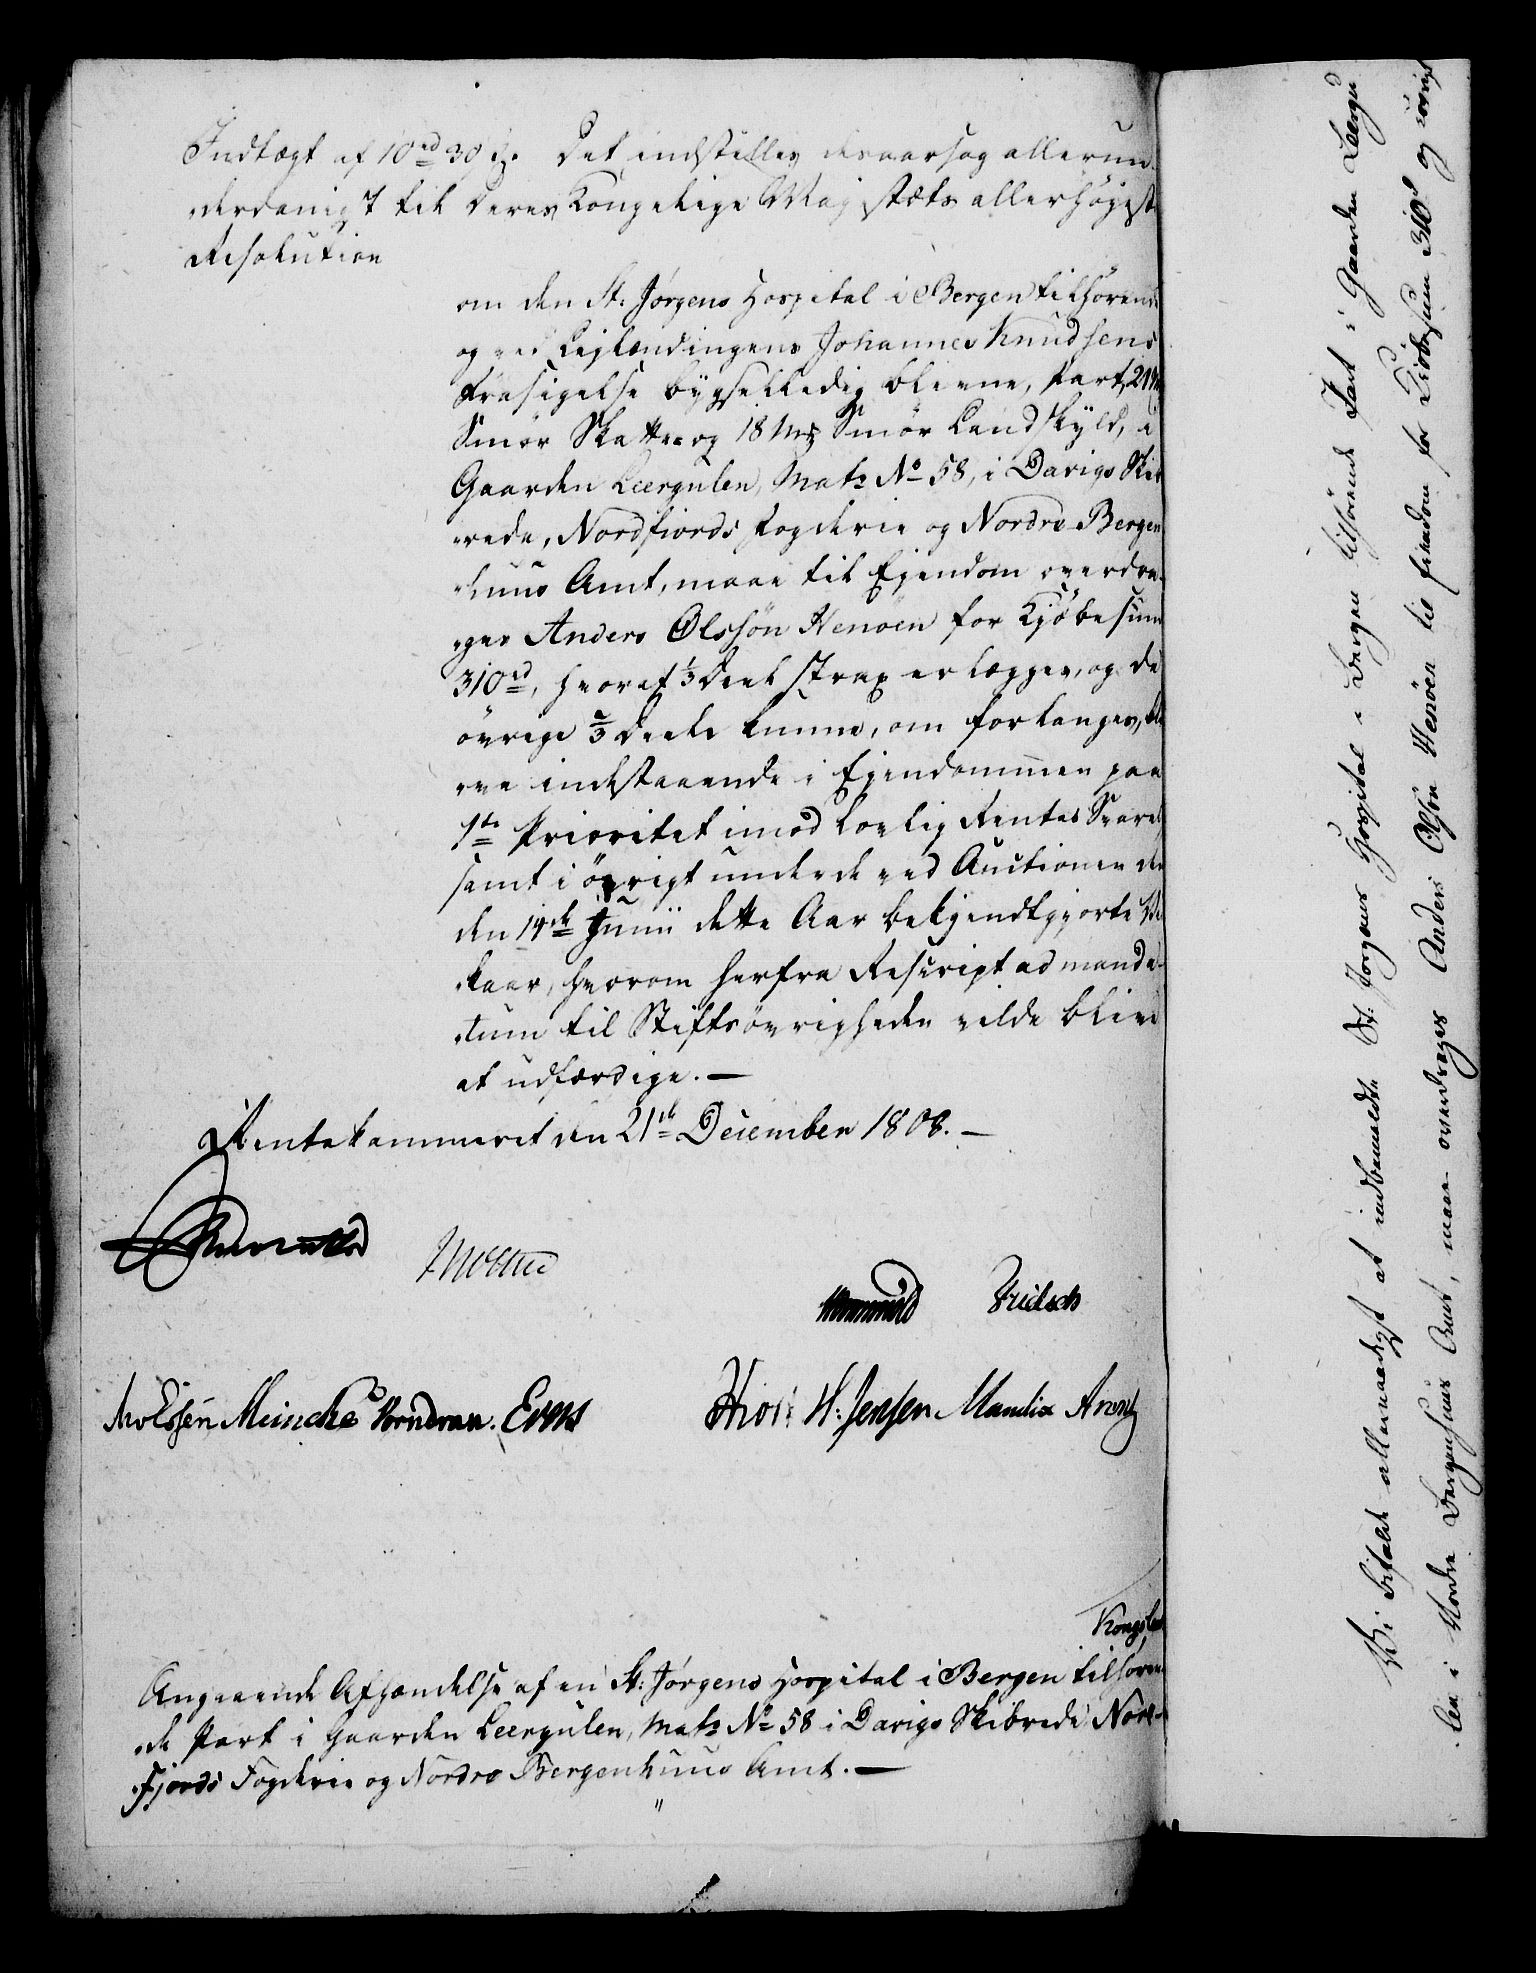 Indtægt af 10rd 30 ß. Det indstilles desaarsag allerun-
derdanigst til Deres Kongelige Majestæts allerhøjeste
Resolution
om den St. Jørgens Hospital i Bergen tilhørende
og ved Lejlændingens Johannes Knudsens
Frasigelse bygselledig blevne, Part, 21
Smør Skatte og 18 mk Smør Landskyld, i
Gaarden Leergulen, Matr No 58, i Davigs Ski-
brede, Nordfiords Fogderie og Nordre Bergen-
huus Amt, maae til Ejendom overdra-
ges Anders Olssøn Henøen for Kjøbesum
310rd, hvoraf 1/3 Deel strax erlægges, og de
øvrige 2/3 Deele kunne, om forlanges, bli-
ve indestaaende i Ejendommen paa
1te Prioritet imod lovlig Rentes Svarelse
samt i øvrigt under de ved Auctionen der
den 14de Junii dette Aar bekjendtgjorte Vil-
kaar, hvorom herfra Rescript ad manda-
tum til Stiftsøvrigheden vilde blive
at udfærdige. —
Rentekammeret den 21de December 1808. —
Fritsch
Meincke Wormdran. Evers
Thor H. Jensen Arentz
Angaaende Afhændelse af en St. Jørgens Hospital i Bergen tilhøren-
de Part i Gaarden Leergulen, Matr No 58 i Davigs Skibrede Nord-
fjords Fogderie og Nordre Bergenhuus Amt. —
Vi bifalde allernaadigst at indbemeldte St. Jørgens Hospital i Bergen tilhørende Part i Gaarden Leergu-
len i Nordre Bergenhuus Amt, maae overdrages Anders Olssøn Henöen til Eiendom for Kiøbesum 310rd og iøvrigt